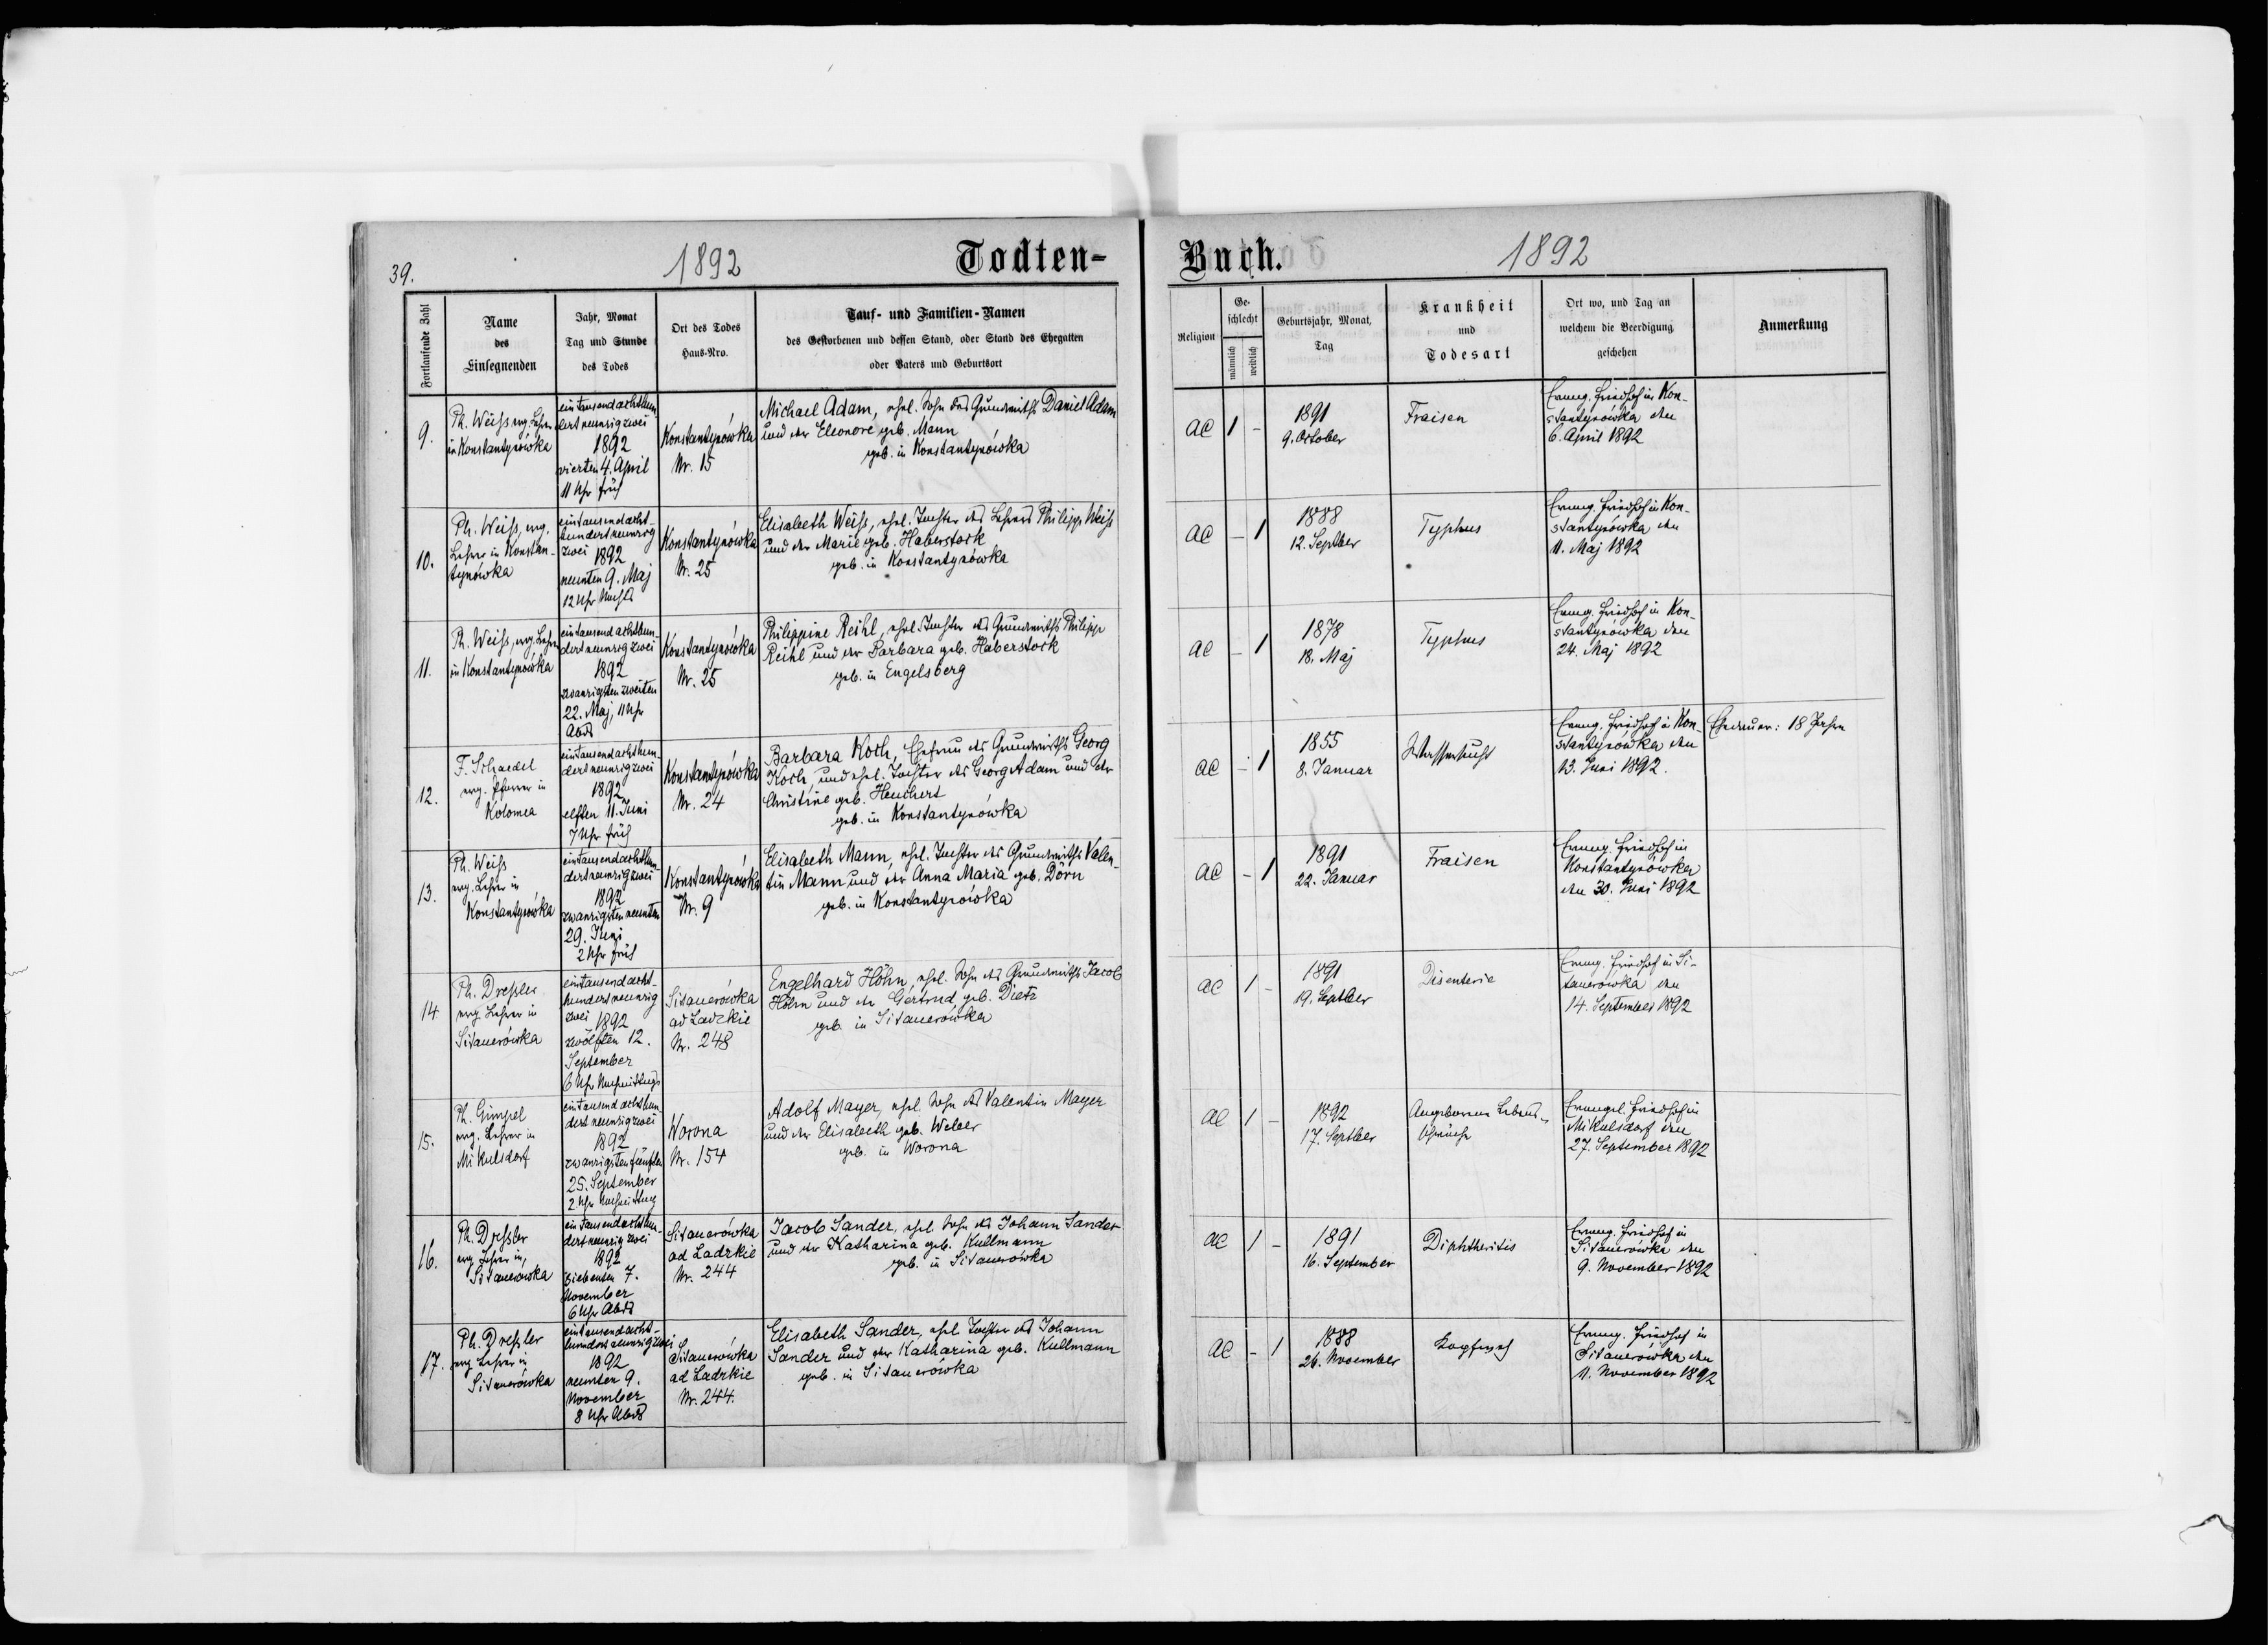 39.
1892
Todten-
Fortlaufende Zahl
Name
des
Einsegnenden
Jahr, Monat
Tag und Stunde
des Todes
Ort des Todes
Haus-Nro.
Tauf- und Familien-Namen
des Gestorbenen und dessen Stand, oder Stand des Ehegatten
oder Vaters und Geburtsort
9.
Ph. Weiss evg. Lehrer
in Konstantynówka
eintausendachthun
dertneunzigzwei
1892
vierten 4. April
11 Uhr früh
Konstantynówka
Nr. 15
Michael Adam, ehel. Sohn des Grundwirths Daniel Adam
und der Eleonore geb. Mann
geb. in Konstantynówka
10.
Ph. Weiss, evg.
Lehrer in Konstan-
tynówka
eintausendacht-
hundertneunzig
zwei 1892
neunten 9. Maj
12 Uhr Nachts
Konstantynówka
Nr. 25
Elisabeth Weiss, ehel. Tochter des Lehrers Philipp Weiss
und der Marie geb. Haberstock
geb. in Konstantynówka
11.
Ph. Weiss, evg. Lehrer
in Konstantynówka
eintausendachthun-
dertneunzigzwei
1892
zwanzigstenzweiten
22. Maj, 11 Uhr
Abds
Konstantynówka
Nr. 25
Philippine Reihl, ehel. Tochter des Grundwirths Philipp
Reihl und der Barbara geb. Haberstock
geb. in Engelsberg
12.
F. Schaedel
evg. Pfarrer in
Kolomea
eintausendachthun
dertneunzigzwei
1892
elften 11. Juni
7 Uhr früh
Konstantynówka
Nr. 24
Barbara Koch, Ehefrau des Grundwirths Georg
Koch, und ehel. Tochter des Georg Adam und der
Christine geb. Heuchert
geb. in Konstantynówka
13.
Ph. Weiss
evg. Lehrer in
Konstantynówka
eintausendachthun
dertneunzigzwei
1892
zwanzigstenneunten
29. Juni
2 Uhr früh
Konstantynówka
Nr. 9
Elisabeth Mann, ehel. Tochter des Grundwirths Valen-
tin Mann und der Anna Maria geb. Dörn
geb. in Konstantynówka
14
Ph. Dressler
evg. Lehrer in
Sitauerówka
eintausendacht-
hundertneunzig
zwei 1892
zwölften 12.
September
6 Uhr Nachmittags
Sitauerówka
ad Ladzkie
Nr. 248
Engelhard Höhn, ehel. Sohn des Grundwirths Jacob
Höhn und der Gertrud geb. Dietz
geb. in Sitauerówka
15.
Ph. Gimpel
evg. Lehrer in
Mikulsdorf
eintausendachthun-
dertneunzigzwei
1892
zwanzigstenfünften
25. September
2 Uhr Nachmittag
Worona
Nr. 154
Adolf Mayer, ehel. Sohn des Valentin Mayer
und der Elisabeth geb. Weber
geb. in Worona
16.
Ph. Dressler
evg. Lehrer in
Sitauerówka
eintausendachthun-
dertneunzigzwei
1892
siebenten 7.
November
6 Uhr Abds
Sitauerówka
ad Ladzkie
Nr. 244
Jacob Sander, ehel. Sohn des Johann Sander
und der Katharina geb. Kullmann
geb. in Sitauerówka
17.
Ph. Dressler
evg. Lehrer in
Sitauerówka
eintausendacht-
hundertneunzigzwei
1892
neunten 9.
November
8 Uhr Abds
Sitauerówka
ad Ladzkie
Nr. 244.
Elisabeth Sander, ehel. Tochter des Johann
Sander und der Katharina geb. Kullmann
geb. in Sitauerówka
Buch.
1892
Religion
Ge-
schlecht
männlich
weiblich
Geburtsjahr, Monat,
Tag
Krankheit
und
Todesart
Ort wo, und Tag an
welchem die Beerdigung
geschehen
Anmerkung
AC 1 -
1891
9. October
Fraisen
Evang. Friedhof in Kon-
stantynówka den
6. April 1892
AC - 1
1888
12. Septber
Typhus
Evang. Friedhof in Kon-
stantynówka den
11. Maj 1892
AC - 1
1878
18. Maj
Typhus
Evang. Friedhof in Kon-
stantynówka den
24. Maj 1892
AC - 1
1855
8. Januar
Wassersucht
Evang. Friedhof in Kon-
stantynówka den
13. Juni 1892.
Ehedauer: 18 Jahre
AC - 1
1891
22. Januar
Fraisen
Evang. Friedhof in
Konstantynówka
den 30. Juni 1892
AC 1 -
1891
19. Septber
Disenterie
Evang. Friedhof in Si-
tauerówka den
14. September 1892
AC 1 -
1892
17. Septber
Angeborene Lebens-
schwäche
Evangel. Friedhof in
Mikulsdorf den
27. September 1892
AC 1 -
1891
16. September
Diphtheritis
Evang. Friedhof in
Sitauerówka den
9. November 1892
AC - 1
1888
26. November
Evang. Friedhof in
Sitauerówka den
11. November 1892